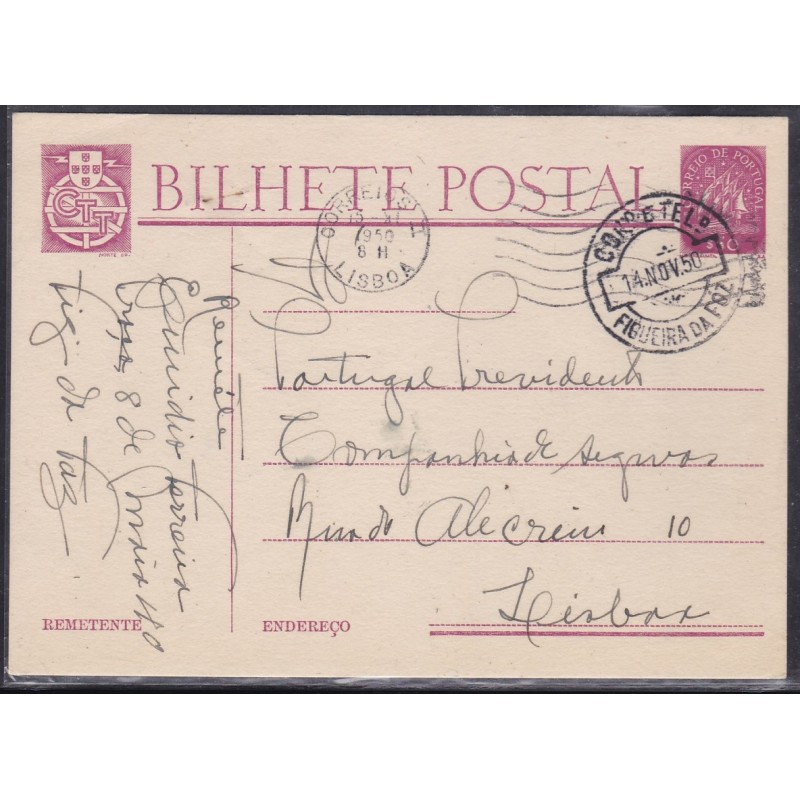 CTT
BILHETE POSTAL
CORREIO DE PORTUGAL
CORREIOS
XI
1950
8 H
LISBOA
CORR. E TEL.
14.NOV.50
FIGUEIRA DA FOZ
Portugal Previdente
Companhia de Seguros
Rua do Alecrim 10
Lisboa
ENDEREÇO
Remete
Emidio Ferreira
8 de Maio
Fig. da Foz
REMETENTE